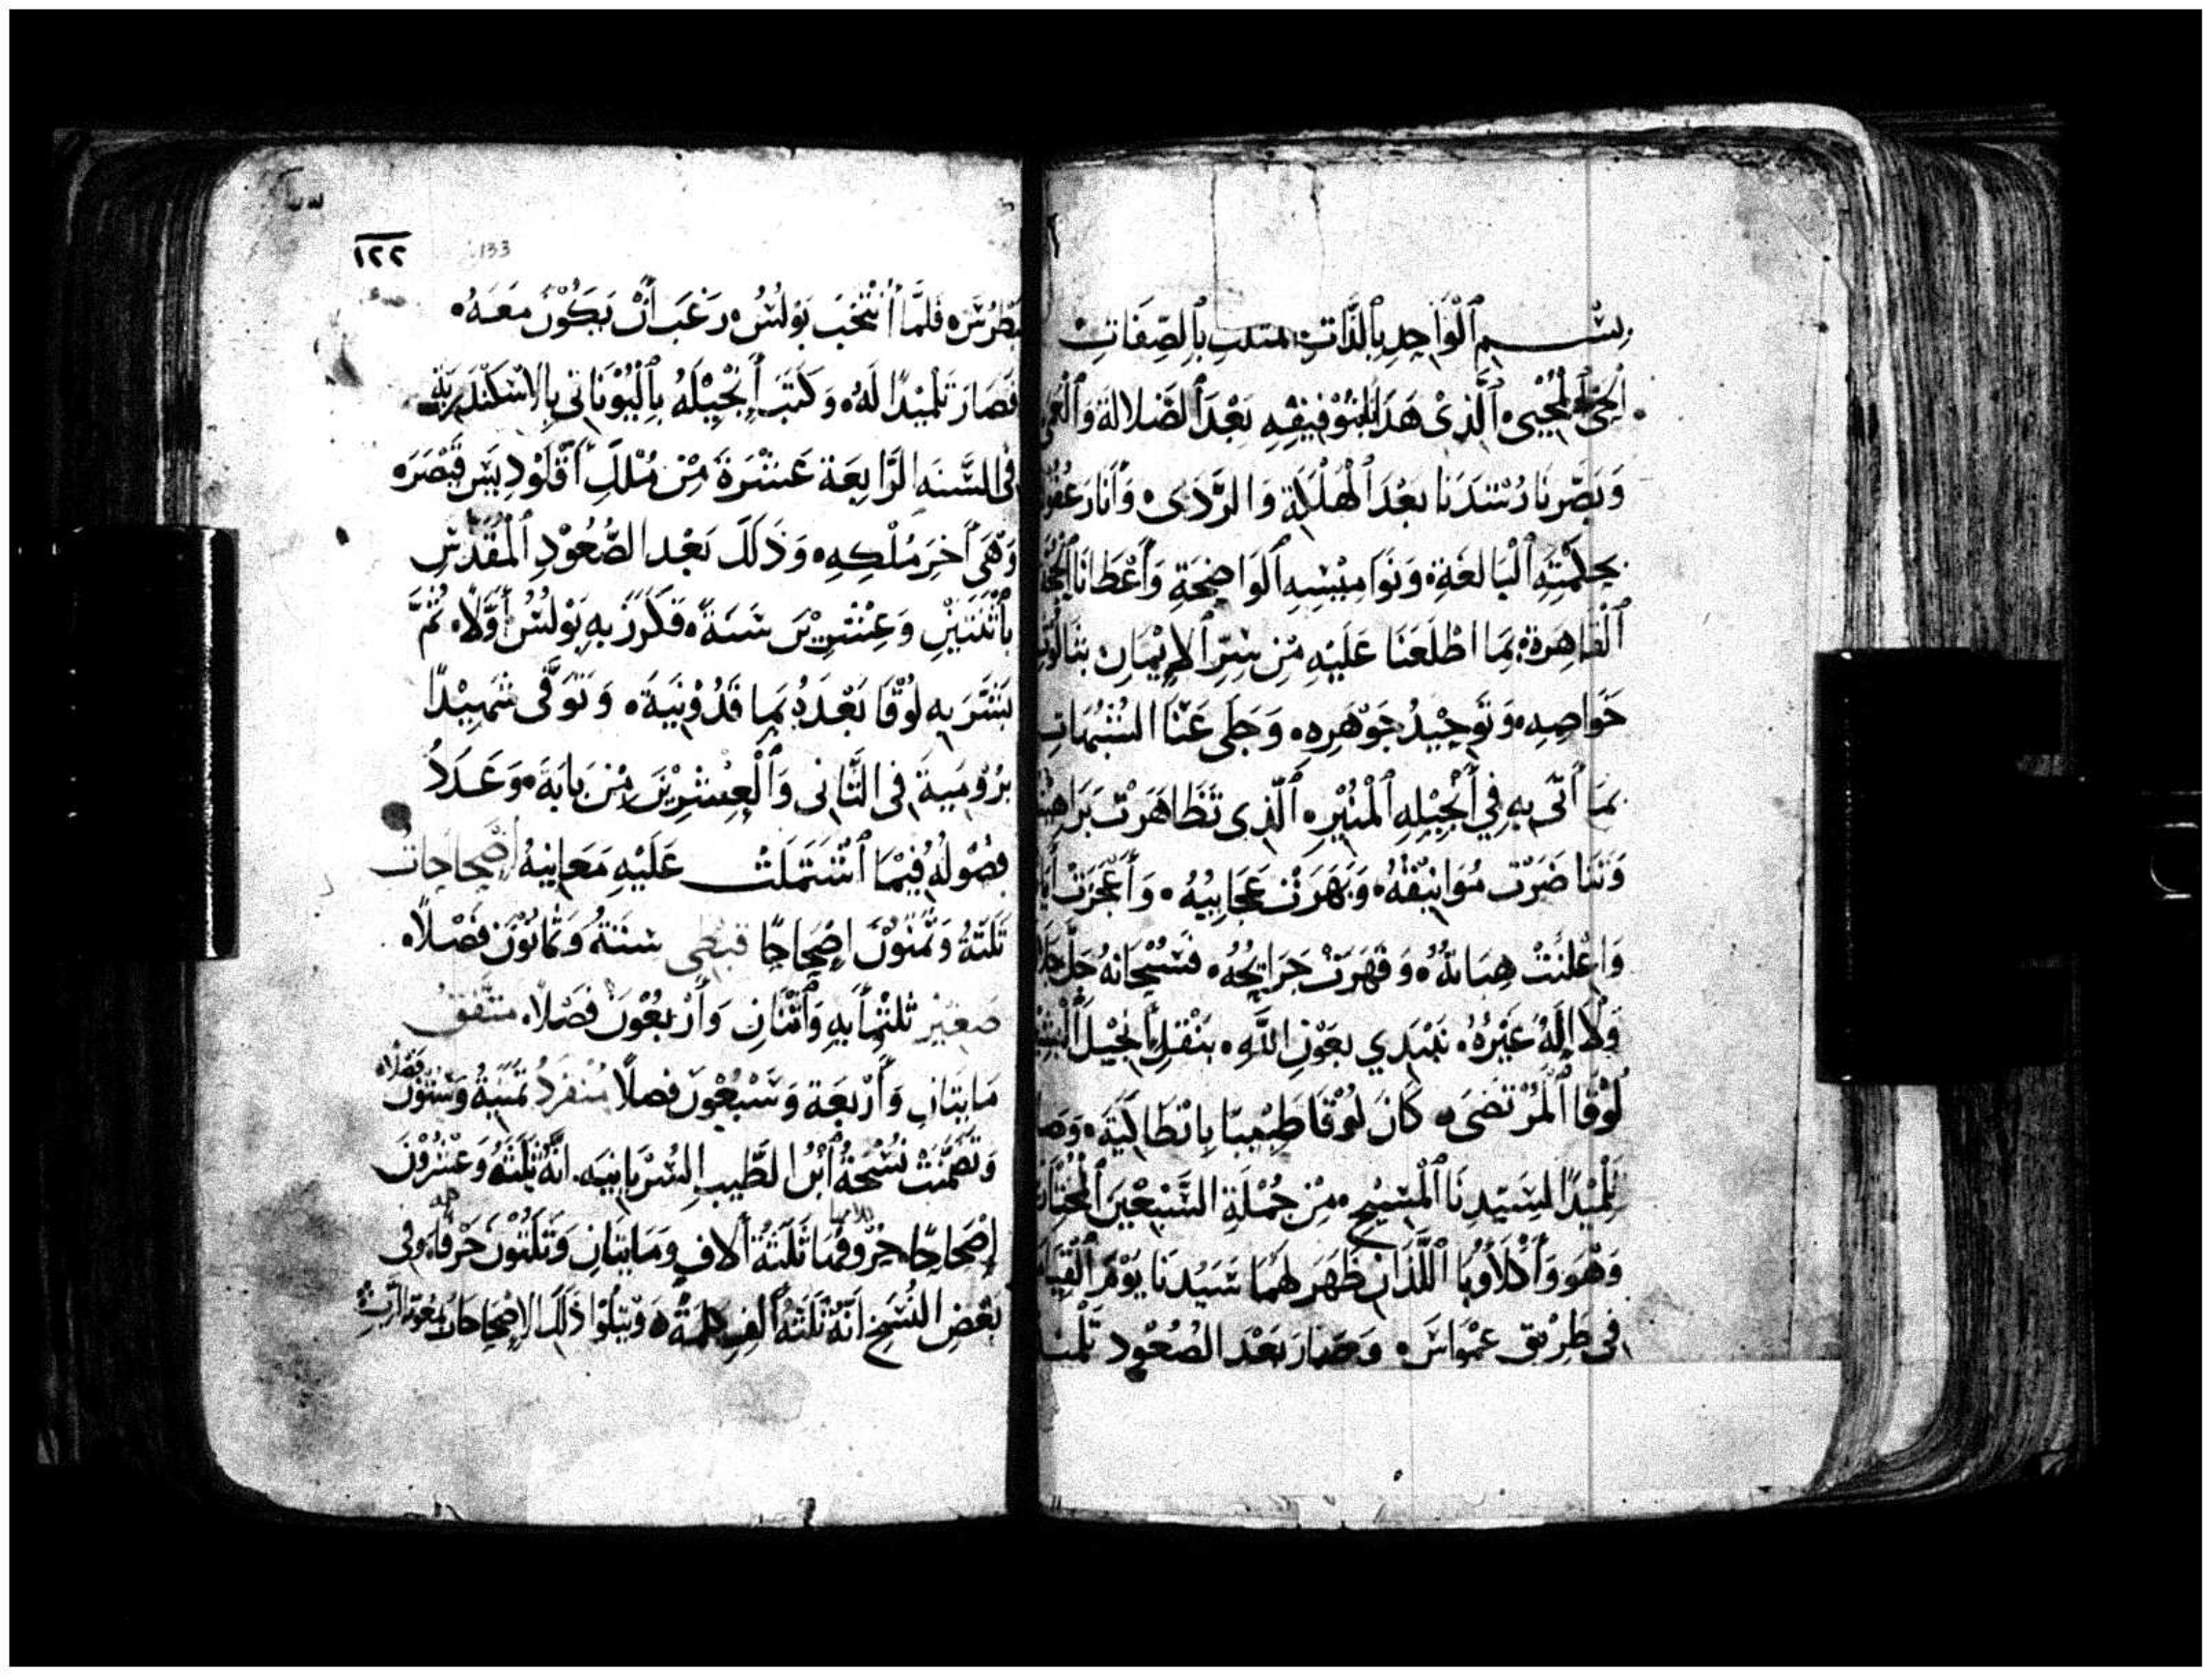 بِسْمِ ٱلْوَاحِدِ بِٱلذَّاتِ مثلث بِٱلصِّفَاتِ
ٱلْحَيِّ ٱلْمُحْيِي ٱلَّذِي هَدَانَا بِتَوْفِيقِهِ بَعْدَ ٱلضَّلالَة وَٱلْعمى
وَبَصَّرَنَا رُشْدَنَا بَعْدَ ٱلْهَلَكَةِ وَالرَّدَى وَأَنَارَ عُقُو
بِحِكْمَتِهِ ٱلْبَالِغَةِ وَنَوَامِيسِهِ ٱلوَاضِحَةِ وَأَعْطَانَا ٱلْحُجَّة
ٱلْقَاهِرَةَ بِمَا اطْلَعَنَا عَلَيْهِ مِن سِرِّ ٱلإِيْمَانِ بِثَالُوث
خَوَاصِهِ وَتَوحِيْدُ جَوْهَرِهِ وَجَلَى عَنَّا الشُبُهَاتِ
بِمَا أَتَى بِهِ فِي أَنْجِيْلِهِ ٱلْمُنِيْرِ ٱلَّذِي تَظَاهَرَتْ بَرَاهِيْ
وَتَنَاضَرَت مُوَاثِيْقُهُ وَبَهَرَتْ عَجَايِبُهُ وَأَعْجَزَتْ
وَاعْلَنَتْ هِبَاتُهُ وَقَهَرَتْ جَرَايِحُهُ فَسُبْحَانَهُ جَلَّ
وَلَا إِلَهُ غَيْرُهُ نَبْتَدِي بِعَوْنِ اللَّهِ بِنَقْلِ أَنْجِيْلَ
لُوْقَا ٱلْمُرْتَضَى كَانَ لُوْقَا طَبِيْبًا بِانْطَاكِيَّةَ وَصَا
تِلْمِيْذًا لِسَيِّدِنَا ٱلْمَسِيْحِ مِنْ جُمْلَةِ السَّبْعِيْنَ ٱلْمُخْتَا
وَهُوَ وَأَكْلَاوُبَا ٱللَّذَانِ ظَهَرَ لَهُمَا سَيِّدُنَا يَوْمَ ٱلْقِيَامَ
فِي طَرِيْقِ عِمْوَاسَ وَصَارَ بَعْدَ الصُعُوْدِ تِلْمِيْ
١٢٢
133
بُطْرُسَ فَلَمَّا أُنْتُخِبَ بَوْلُسُ رَغَبَ أَنْ يَكُوْنَ مَعَهُ
فَصَارَ تِلْمِيْذًا لَهُ وَكَتَبَ أَنْجِيْلَهُ بِٱلْيُوْنَانِي بِالاسْكَنْدَرِيَّةِ
فِي السَّنَه الرَّابِعَة عَشَرَةَ مِنْ مُلْكِ أَقْلَوْدِيَس قَيْصَرَ
وَهْيَ أَخِرَ مُلْكِهِ وَذَلَكَ بَعْد الصُّعُوْدِ ٱلْمُقَدَّسِ
بِٱثْنَتَيْنِ وَعِشْرِيْنَ سَنَةً فَكَرَزَ بِهِ بَوْلُسُ أَوَّلًا ثُمَّ
بَشَّرَ بِهِ لُوْقَا بَعْدَهُ بِمَاقَدُوْنِيَةَ وَتَوَفَّى شَهِيْدًا
بِرُوْمِيَةَ فِي الثَّانِي وَٱلْعِشْرِيْنَ مِنْ بَابَةَ وَعَدَدُ
فِصُوْلُهُ فِيْمَا ٱشْتَمَلَتْ عَلَيْهِ مَعَانِيهُ أَصْحَاحَاتُ
ثَلَثَةُ وَثَمَنُوْنَ إِصْحَاحًا قبطى سِتَّةُ وَثَمَانُوْنَ فَصْلًا
صَغِيْر ثَلثْمَايهِ وَٱثْنَانِ وَأَرْبَعُوْنَ فَصْلًا متفق
مَايَتَانِ وَأَرْبَعَة وَسَبْعُوْنَ فصلًا مُنْفَرِدُ ثَمَنِيَةُ وَسِتُّوْنَ فَصْلًا
وَتَضَمَّنَتْ نُسْخَةُ ٱبْنُ الطَّيبِ السُّرْيَانِيَه انَّهُ ثَلَثَةُ وَعِشْرُوْنَ
إِصْحَاحًا حُرُوفُهَا ثَلَثَةُ ألافِ وَمَايَتَانِ وَثَلَثُوْنَ حَرْفًا وَفِي
بَعْضِ النُّسَخِ انَّهُ ثَلَثَةُ ألفِ كلمَةً وَيَتْلُوا ذَلِكَ الإِصْحَاحَاتُ بمعُونَة الرَّبِّ